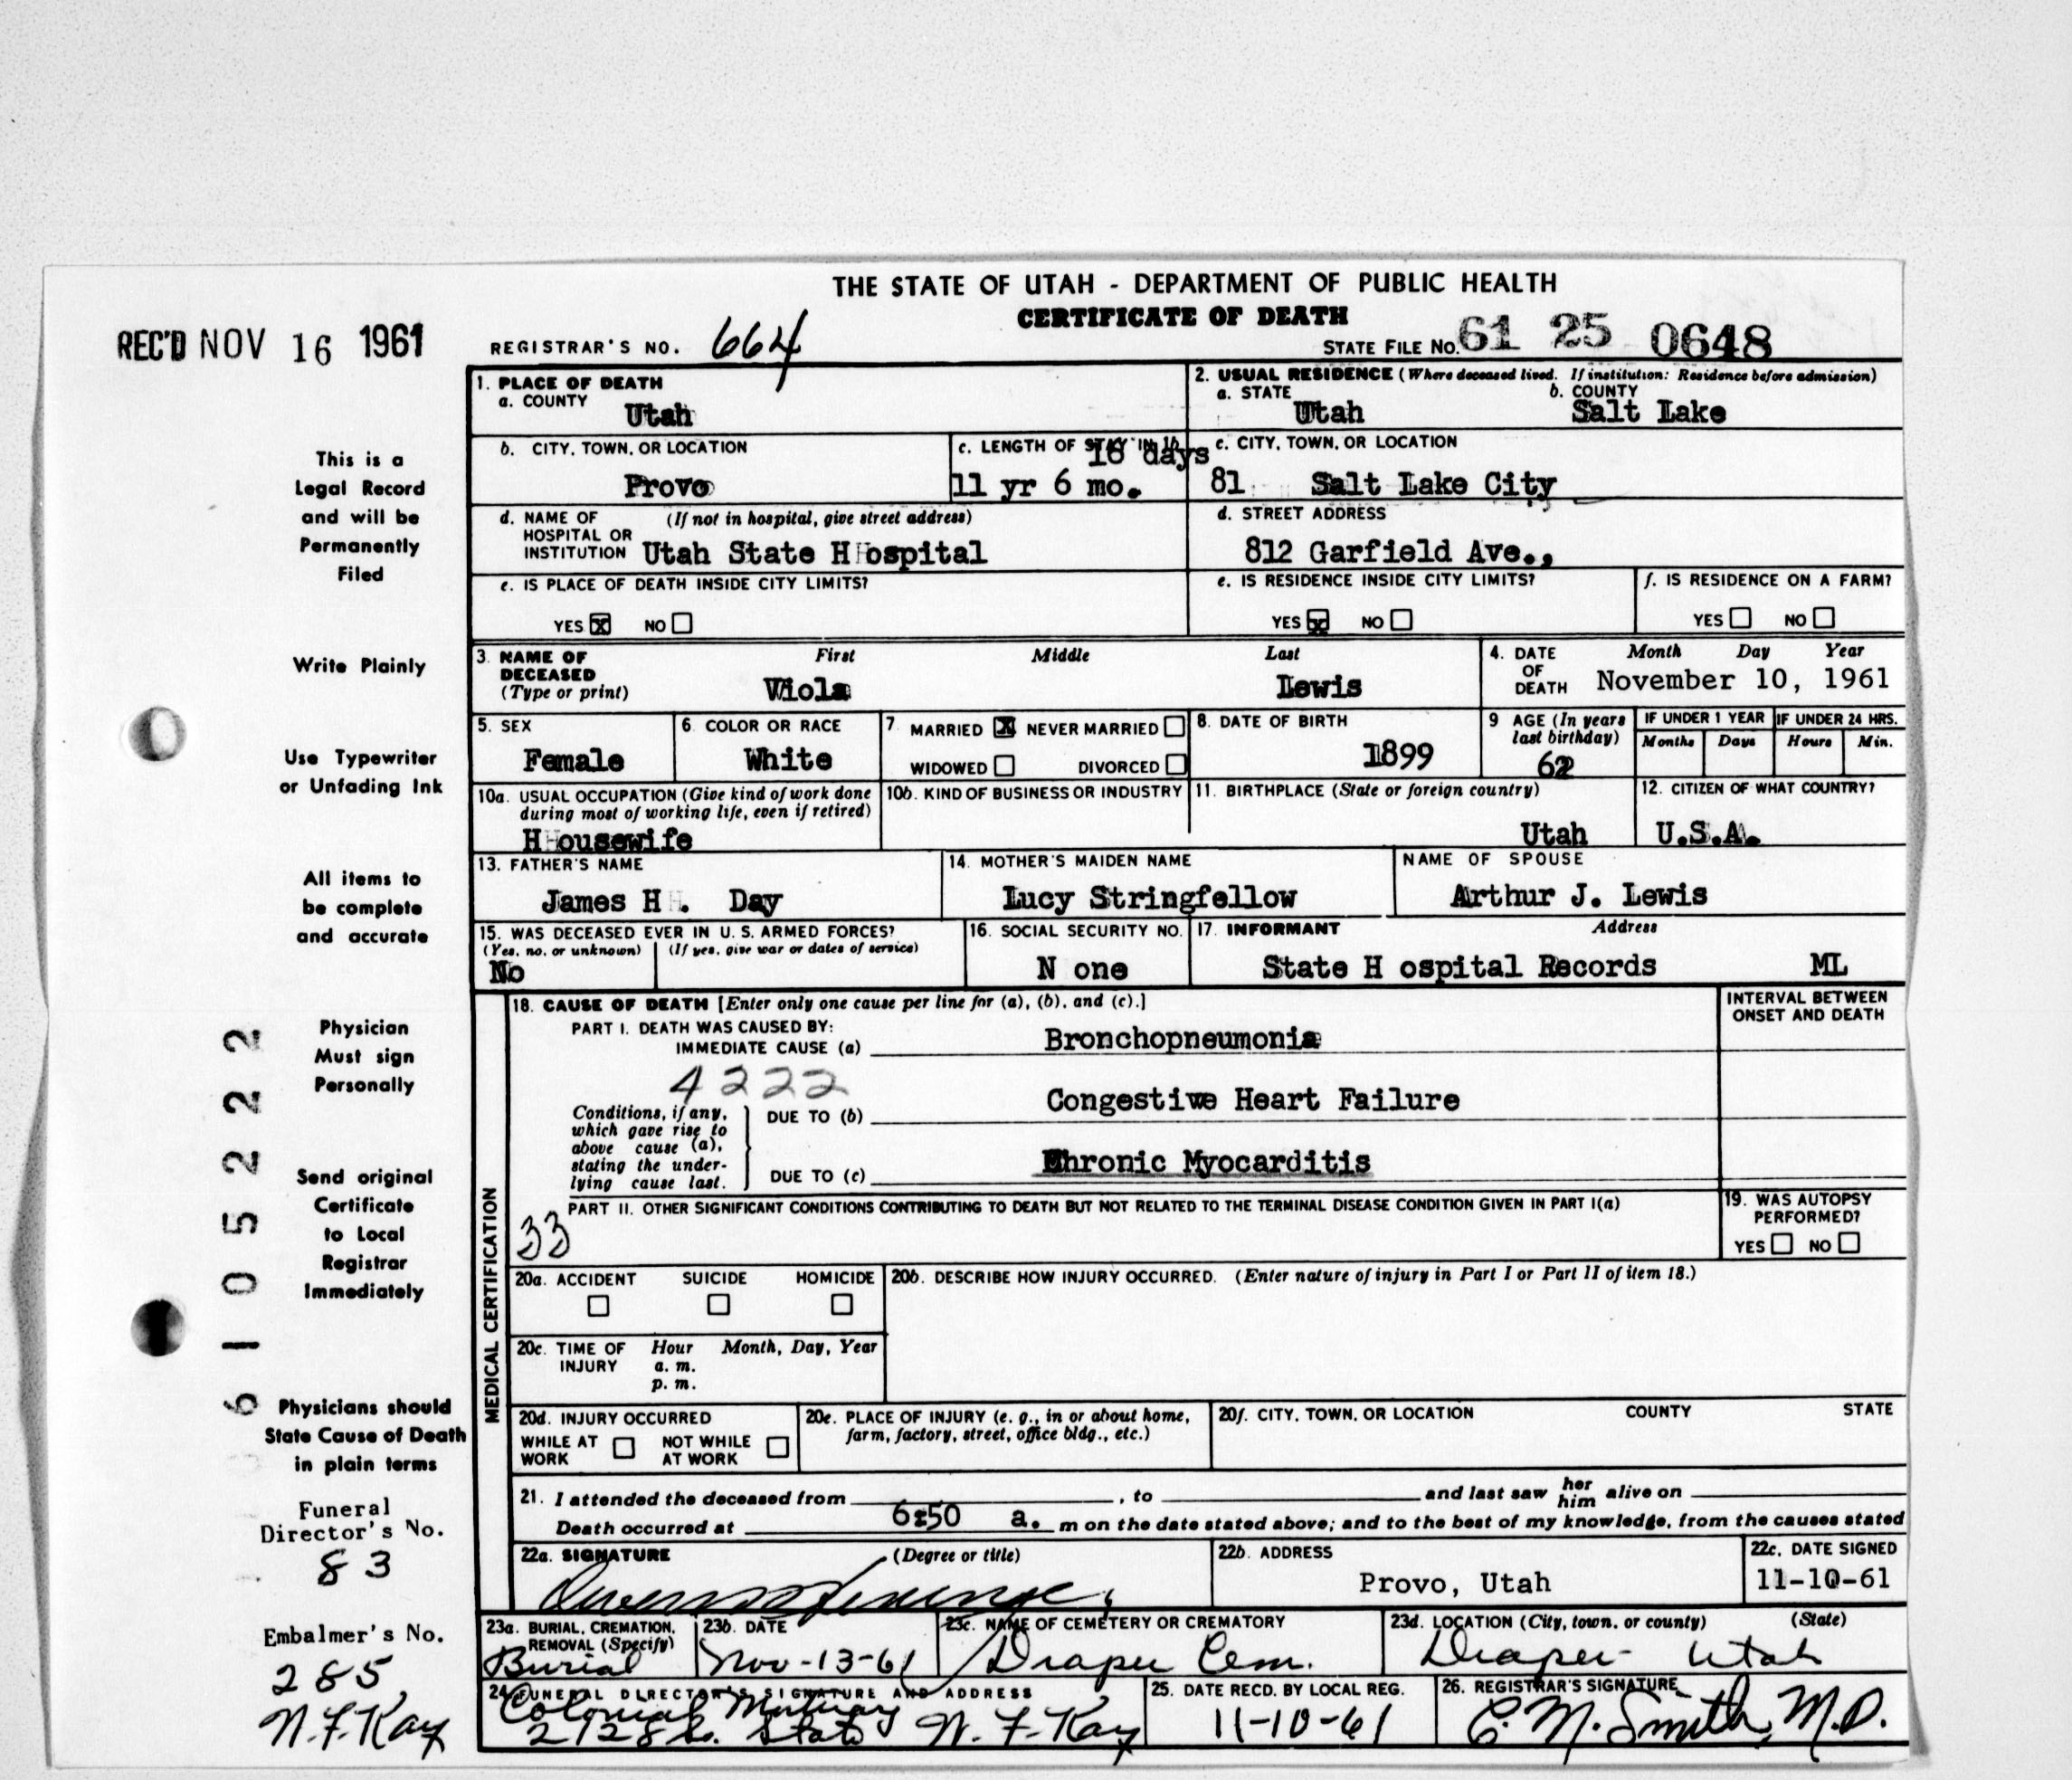 THE STATE OF UTAH - DEPARTMENT OF PUBLIC HEALTH
CERTIFICATE OF DEATH
REC'D NOV 16 1961
REGISTRAR'S NO. 664
STATE FILE NO. 61 25 0648
1. PLACE OF DEATH
a. COUNTY
Utah
2. USUAL RESIDENCE (Where deceased lived. If institution: Residence before admission)
a. STATE b. COUNTY
Utah Salt Lake
b. CITY, TOWN, OR LOCATION
Provo
c. LENGTH OF STAY IN 1b
16 days
11 yr 6 mo.
c. CITY, TOWN, OR LOCATION
81 Salt Lake City
d. NAME OF (If not in hospital, give street address)
HOSPITAL OR
INSTITUTION Utah State Hospital
d. STREET ADDRESS
812 Garfield Ave.,
e. IS PLACE OF DEATH INSIDE CITY LIMITS?
YES X NO
e. IS RESIDENCE INSIDE CITY LIMITS?
YES X NO
f. IS RESIDENCE ON A FARM?
YES NO
3. NAME OF DECEASED (Type or print)
First Middle Last
Viola Lewis
4. DATE OF DEATH
Month Day Year
November 10, 1961
5. SEX
Female
6. COLOR OR RACE
White
7. MARRIED X NEVER MARRIED
WIDOWED DIVORCED
8. DATE OF BIRTH
1899
9 AGE (In years last birthday)
62
IF UNDER 1 YEAR IF UNDER 24 HRS.
Months Days Hours Min.
10a. USUAL OCCUPATION (Give kind of work done
during most of working life, even if retired)
Housewife
10b. KIND OF BUSINESS OR INDUSTRY
11. BIRTHPLACE (State or foreign country)
Utah
12. CITIZEN OF WHAT COUNTRY?
U.S.A.
13. FATHER'S NAME
James H. Day
14. MOTHER'S MAIDEN NAME
Lucy Stringfellow
NAME OF SPOUSE
Arthur J. Lewis
15. WAS DECEASED EVER IN U. S. ARMED FORCES?
(Yes, no, or unknown) (If yes, give war or dates of service)
No
16. SOCIAL SECURITY NO.
N one
17. INFORMANT Address
State H ospital Records ML
MEDICAL CERTIFICATION
18. CAUSE OF DEATH [Enter only one cause per line for (a), (b), and (c).]
INTERVAL BETWEEN
ONSET AND DEATH
PART I. DEATH WAS CAUSED BY:
IMMEDIATE CAUSE (a) Bronchopneumonia
4222
Conditions, if any,
which gave rise to
above cause (a),
stating the under-
lying cause last.
DUE TO (b) Congestive Heart Failure
DUE TO (c) Chronic Myocarditis
PART II. OTHER SIGNIFICANT CONDITIONS CONTRIBUTING TO DEATH BUT NOT RELATED TO THE TERMINAL DISEASE CONDITION GIVEN IN PART I(a)
33
19. WAS AUTOPSY
PERFORMED?
YES NO
20a. ACCIDENT SUICIDE HOMICIDE
20b. DESCRIBE HOW INJURY OCCURRED. (Enter nature of injury in Part I or Part II of item 18.)
20c. TIME OF INJURY
Hour Month, Day, Year
a. m.
p. m.
20d. INJURY OCCURRED
WHILE AT WORK NOT WHILE AT WORK
20e. PLACE OF INJURY (e. g., in or about home,
farm, factory, street, office bldg., etc.)
20f. CITY, TOWN, OR LOCATION COUNTY STATE
21. I attended the deceased from , to and last saw her him alive on
Death occurred at 6:50 a. m on the date stated above; and to the best of my knowledge, from the causes stated
22a. SIGNATURE (Degree or title)
22b. ADDRESS
Provo, Utah
22c. DATE SIGNED
11-10-61
23a. BURIAL, CREMATION,
REMOVAL (Specify)
Burial
23b. DATE
Nov-13-61
23c. NAME OF CEMETERY OR CREMATORY
Draper Cem.
23d. LOCATION (City, town, or county) (State)
Draper Utah
24. FUNERAL DIRECTOR'S SIGNATURE AND ADDRESS
Colonial Mortuary
2128 So. State N. F. Kay
25. DATE RECD. BY LOCAL REG.
11-10-61
26. REGISTRAR'S SIGNATURE
C. N. Smith, M.D.
This is a
Legal Record
and will be
Permanently
Filed
Write Plainly
Use Typewriter
or Unfading Ink
All items to
be complete
and accurate
Physician
Must sign
Personally
Send original
Certificate
to Local
Registrar
Immediately
Physicians should
State Cause of Death
in plain terms
Funeral
Director's No.
83
Embalmer's No.
285
N. F. Kay
6105222